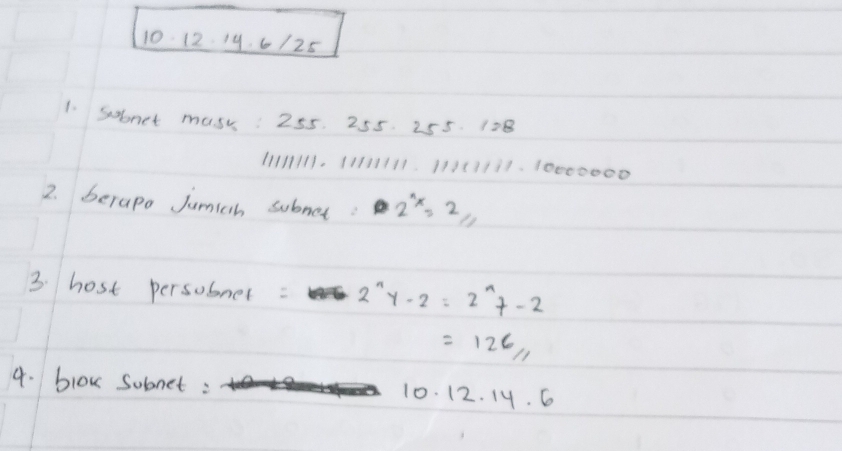 10.12.14.6/25
1. subnet mask : 255. 255. 255. 128
11111111. 11111111. 11111111. 10000000
2. berapa jumlah subnet : 2^x = 2//
3. host persubnet = 2^y-2 = 2^7-2
= 126//
4. blok subnet : 10.12.14.6